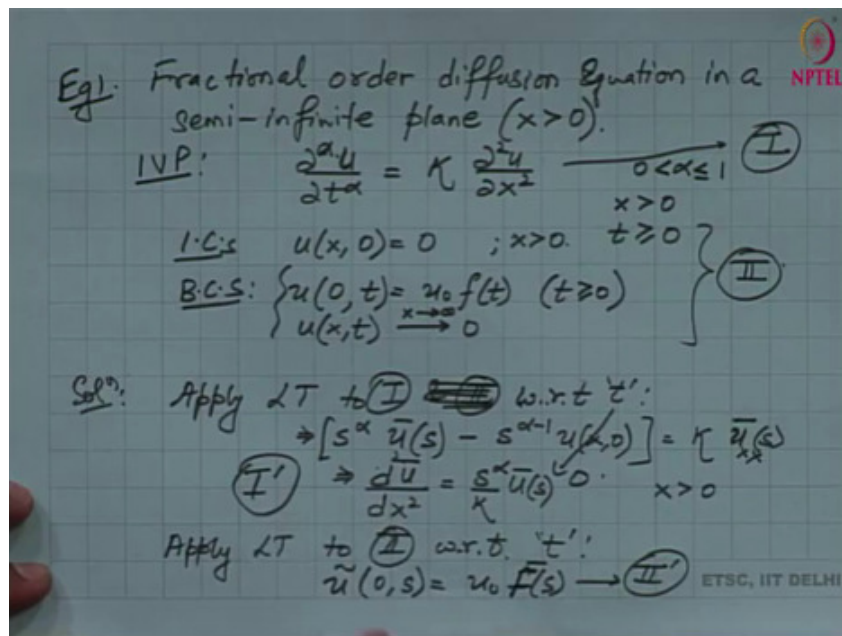 Eg1. Fractional order diffusion Equation in a
semi-infinite plane (x>0).
NPTEL
IVP: ∂^α u/∂t^α = K ∂²u/∂x² → I
0<α≤1
x>0
I.C.s u(x,0)=0 ; x>0. t≥0
B.C.S: { u(0,t)= u₀ f(t) (t≥0) } II
u(x,t) →^{x→∞} 0
Solⁿ: Apply LT to I w.r.t 't':
⇒ [s^α ū(s) - s^{α-1} u(x,0)] = K ū_xx(s)
I' ⇒ d²ū/dx² = s^α/K ū(s) 0 . x>0
Apply LT to II w.r.t. 't':
ũ(0,s)= u₀ F̄(s) → II'
ETSC, IIT DELHI